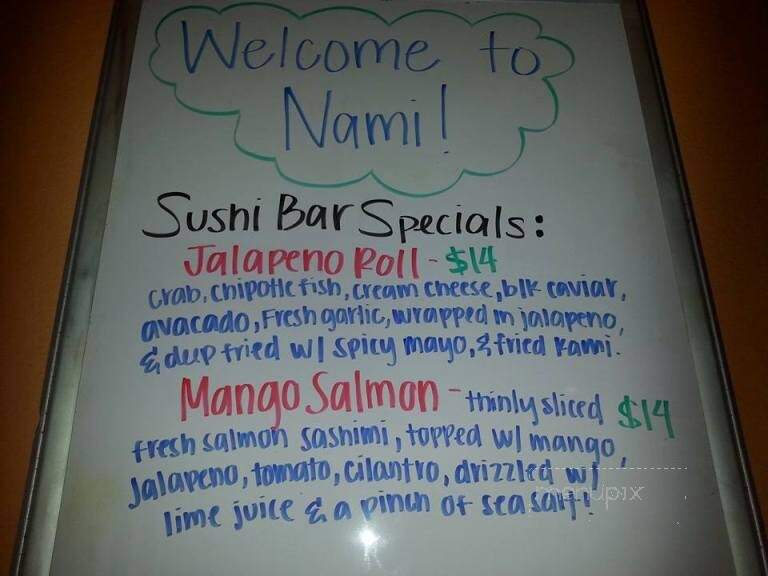 Welcome to
Nami!
Sushi Bar Specials:
Jalapeno Roll - $14
crab, chipotle fish, cream cheese, blk caviar,
avacado, Fresh garlic, wrapped in jalapeno,
& deep fried w/ spicy mayo, & fried kami.
Mango Salmon - thinly sliced $14
fresh salmon sashimi, topped w/ mango,
Jalapeno, tomato, cilantro, drizzled w/
lime juice & a pinch of sea salt!
menupix